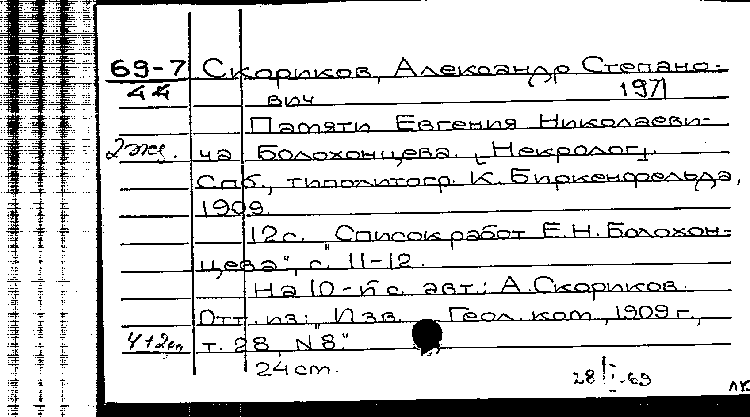 69-7 Скориков, Александр Степано-
44 вич 1971
Памяти Евгения Николаеви-
2 экз. ча Болохонцева. [Некролог].
Спб., типолитогр. К. Биркенфельда,
1909.
12 с. "Список работ Е.Н. Болохон-
цева", с. 11-12.
На 10-й с. авт.: А. Скориков.
Отт. из: "Изв. Геол. ком., 1909 г.,
т. 28, N 8."
24 ст.
28/I-69